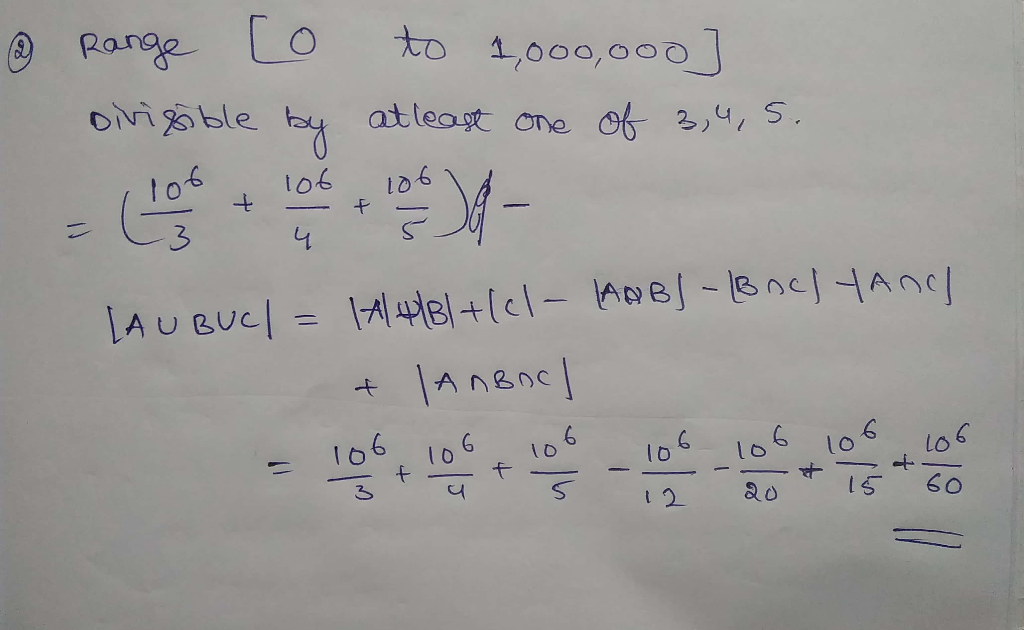 ② Range [0 to 1,000,000]
Divisible by atleast one of 3,4, 5.
= (10^6/3 + 10^6/4 + 10^6/5) -
|A∪B∪C| = |A|+|B|+|C| - |A∩B| - |B∩C| - |A∩C|
+ |A∩B∩C|
= 10^6/3 + 10^6/4 + 10^6/5 - 10^6/12 - 10^6/20 + 10^6/15 + 10^6/60